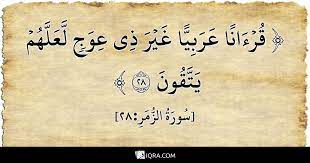 ﴿ قُرۡءَانًا عَرَبِيًّا غَيۡرَ ذِي عِوَجٖ لَّعَلَّهُمۡ
يَتَّقُونَ ٢٨ ﴾
[سُورَةُ الزُّمَرِ: ٢٨]
IQRA.COM